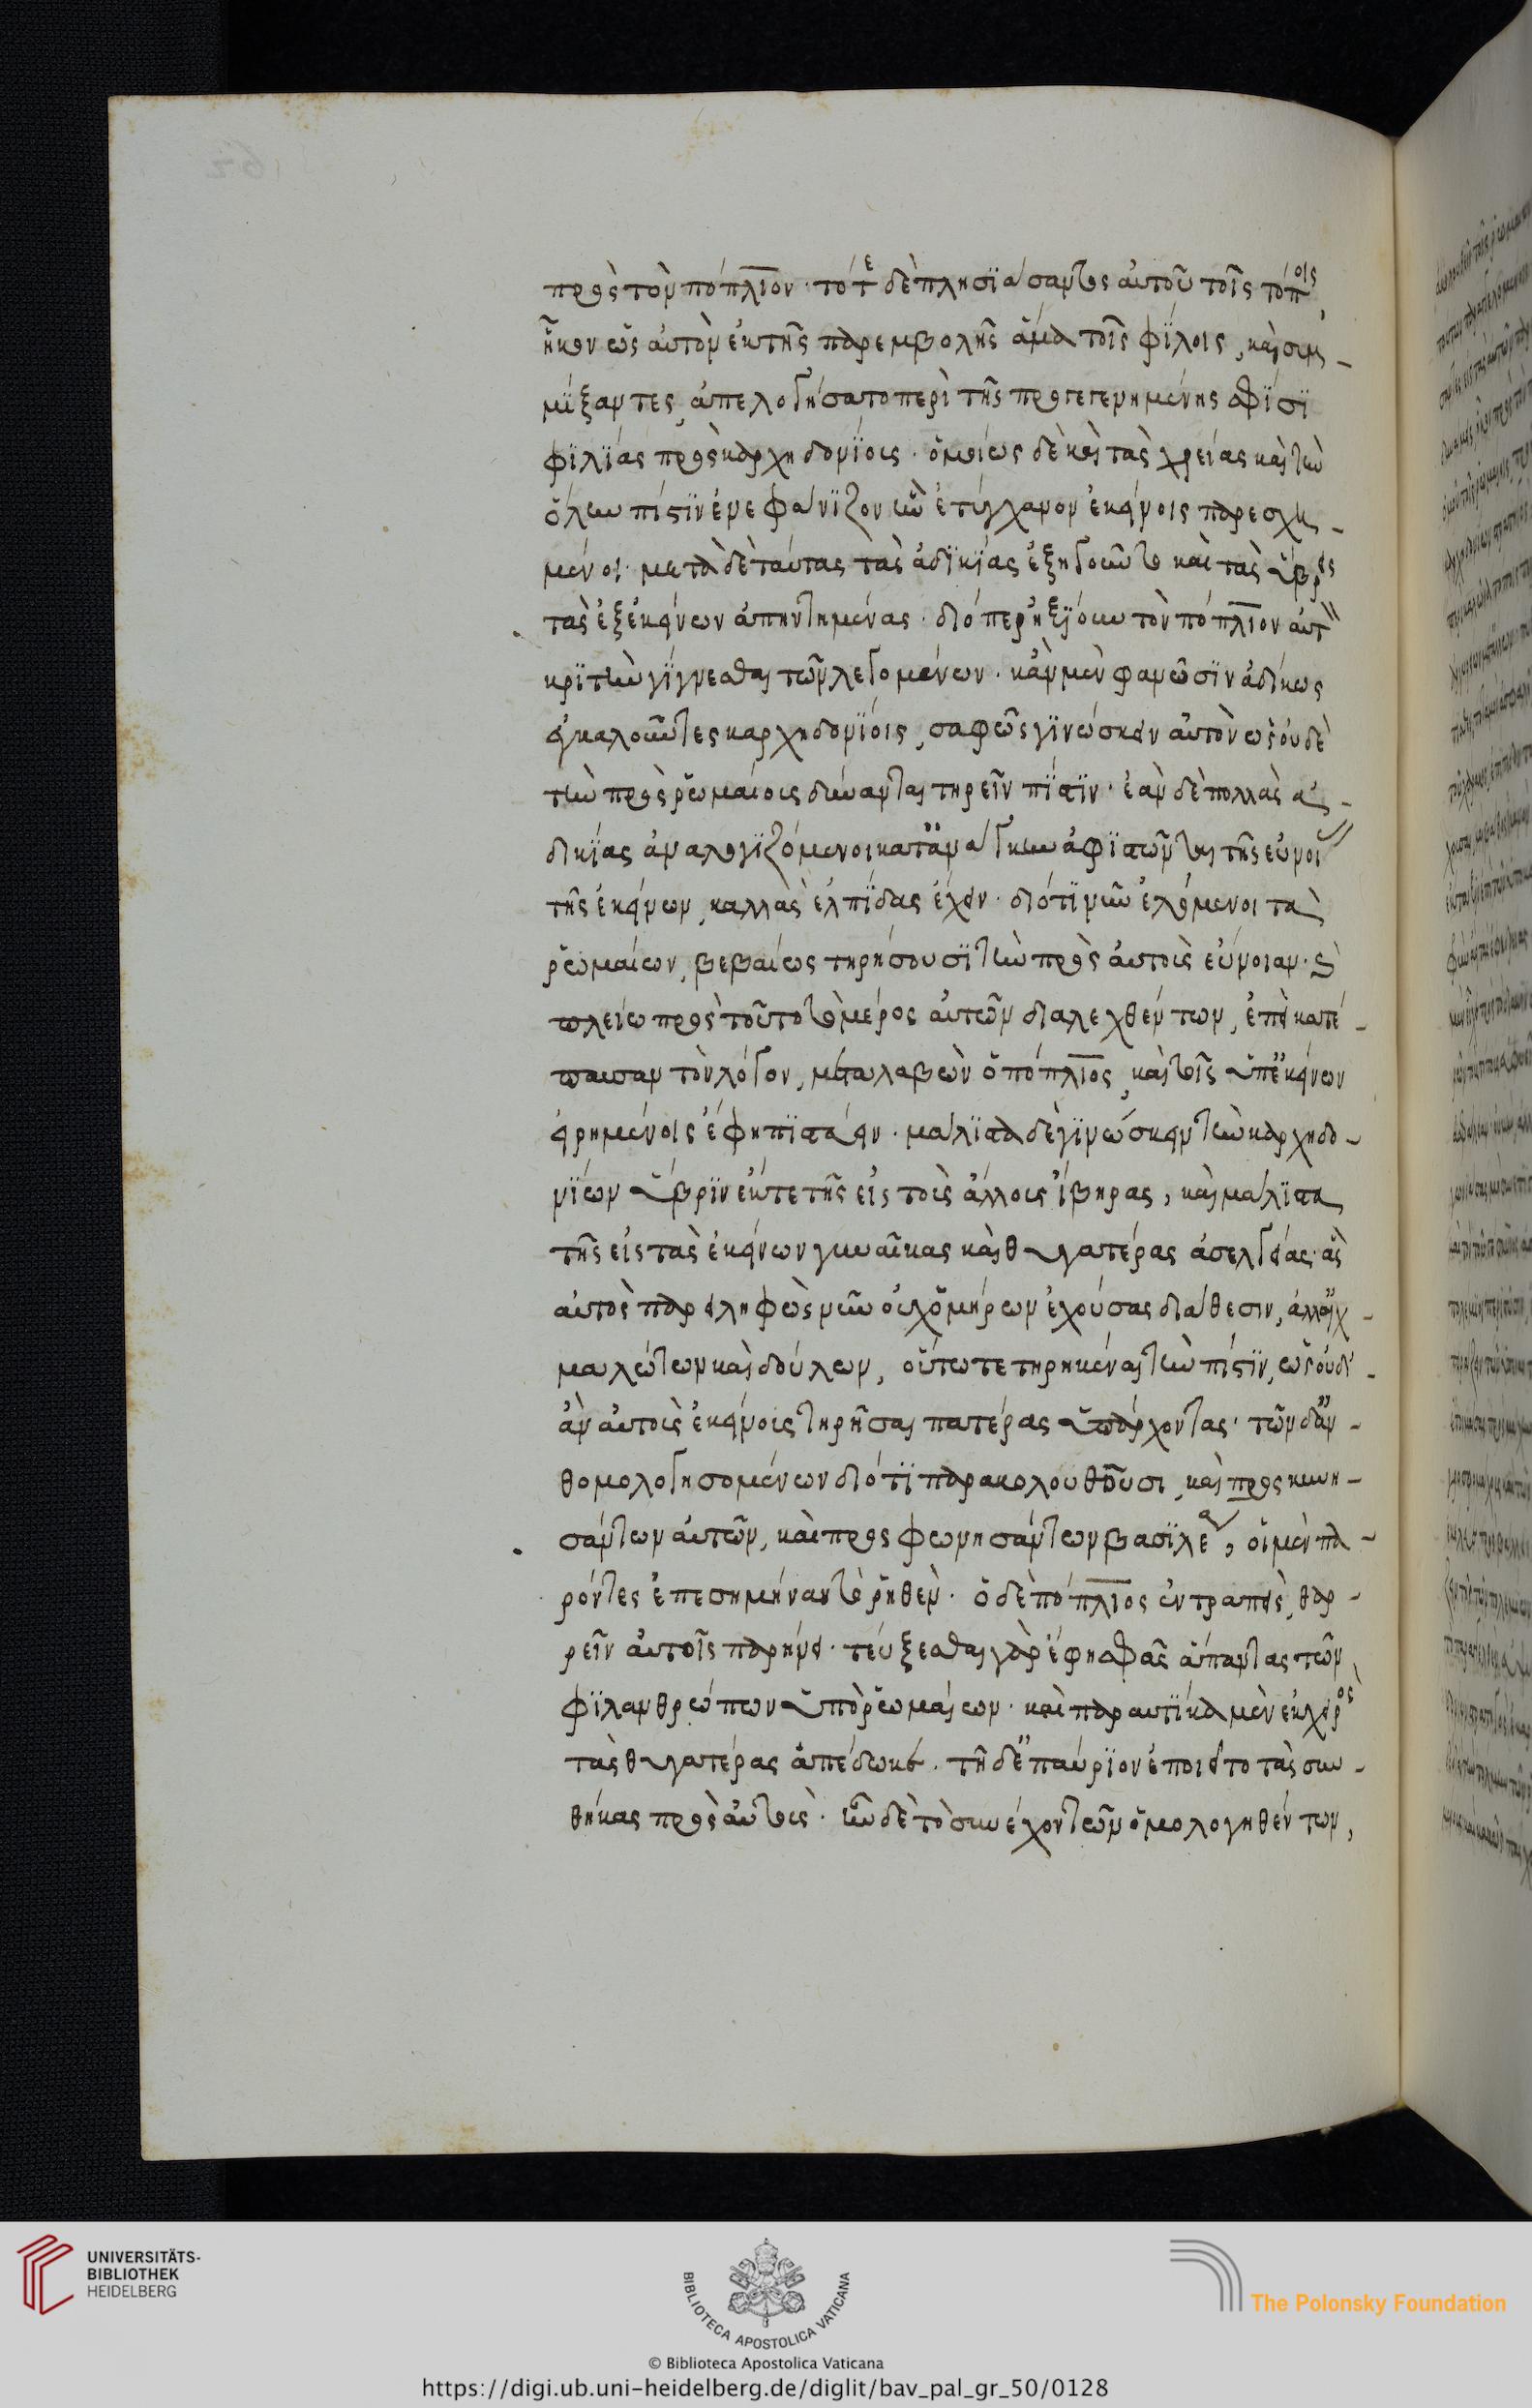 πρὸς τὸν πόπλιον· τότε δὲ πλησϊάσαντος αὐτοῦ τοῖς τόποις
ἧκον ὡς αὐτὸν ἐκ τῆς παρεμβολῆς ἅμα τοῖς φίλοις, καὶ συμ-
μίξαντες, ἀπελογήσατο περὶ τῆς προτετερημένης σφίσϊ
φϊλϊας πρὸς καρχηδονϊους· ὁμοίως δὲ καὶ τὰς χρείας καὶ τὴν
ὅλην πίστϊν ἐνεφάνϊζον ἣν ἐτύγχανον ἐκείνοις παρεσχη-
μένοι· μετὰ δὲ ταύτας τὰς ἀδϊκίας ἐξηγοῦντο καὶ τὰς ὕβρεις
τὰς ἐξ ἐκείνων ἀπηντημένας· διόπερ ἠξϊουν τὸν πόπλιον αὐτ
κρϊτὴν γίγνεσθαι τῶν λεγομένων· κἂν μὲν φανῶσϊν ἀδίκως
ἐγκαλοῦντες καρχηδονϊοις, σαφῶς γϊνώσκειν αὐτὸν ὡς οὐδὲ
τὴν πρὸς ῥωμαίους δύνανται τηρεῖν πίστϊν· ἐὰν δὲ πολλὰς ἀ-
δικϊας ἀναλογϊζόμενοι κατ' ἀνάγκην ἀφϊστῶνται τῆς εὐνοι
τῆς ἐκείνων, καλλὰς ἐλπϊδας ἔχειν· διότϊ νῦν ἑλόμενοι τὰ
ῥωμαίων, βεβαίως τηρήσουσϊ τὴν πρὸς αὐτοὺς εὔνοιαν· καὶ
πλείω πρὸς τοῦτο τὸ μέρος αὐτῶν διαλεχθέντων, ἐπεὶ κατέ-
παυσαν τὸν λόγον, μεταλαβὼν ὁ πόπλιος, καὶ τοῖς ὑπ' ἐκείνων
εἰρημένοις ἔφη πϊστεύειν· μάλϊστα δὲ γϊνώσκειν τὴν καρχηδο-
νϊων ὕβρϊν ἔκ τε τῆς εἰς τοὺς ἄλλους ἴβηρας, καὶ μάλϊστα
τῆς εἰς τὰς ἐκείνων γυναῖκας καὶ θυγατέρας ἀσελγείας· ἃς
αὐτὸς παρειληφὼς νῦν οὐχ ὁμήρων ἐχούσας διάθεσιν, ἀλλ' αἰχ-
μαλώτων καὶ δούλων, οὕτω τετηρηκέναι τὴν πίστϊν, ὡς οὐδ'-
ἂν αὐτοὺς ἐκείνους τηρῆσαι πατέρας ὑπάρχοντας· τῶν δ' ἀν-
θομολογησομένων διότϊ παρακολουθοῦσι, καὶ προσκυνη-
σάντων αὐτῶν, καὶ προσφωνησάντων βασϊλέα, οἱ μὲν πα-
ρόντες ἐπεσημήναντο ῥηθὲν· ὁ δὲ πόπλιος ἐντραπεὶς, θαρ-
ρεῖν αὐτοῖς παρήνει· τεύξεσθαι γὰρ ἔφη σφᾶς ἁπάντας τῶν
φϊλανθρώπων ὑπὸ ῥωμαίων· καὶ παραυτίκα μὲν ἐκ χειρὸς
τὰς θυγατέρας ἀπέδωκε· τῇ δ' ἐπαύρϊον ἐποιεῖτο τὰς συν-
θήκας πρὸς αὐτοὺς· ἦν δὲ τὸ συνέχον τῶν ὁμολογηθέντων,
UNIVERSITÄTS-
BIBLIOTHEK
HEIDELBERG
BIBLIOTECA APOSTOLICA VATICANA
The Polonsky Foundation
© Biblioteca Apostolica Vaticana
https://digi.ub.uni-heidelberg.de/diglit/bav_pal_gr_50/0128